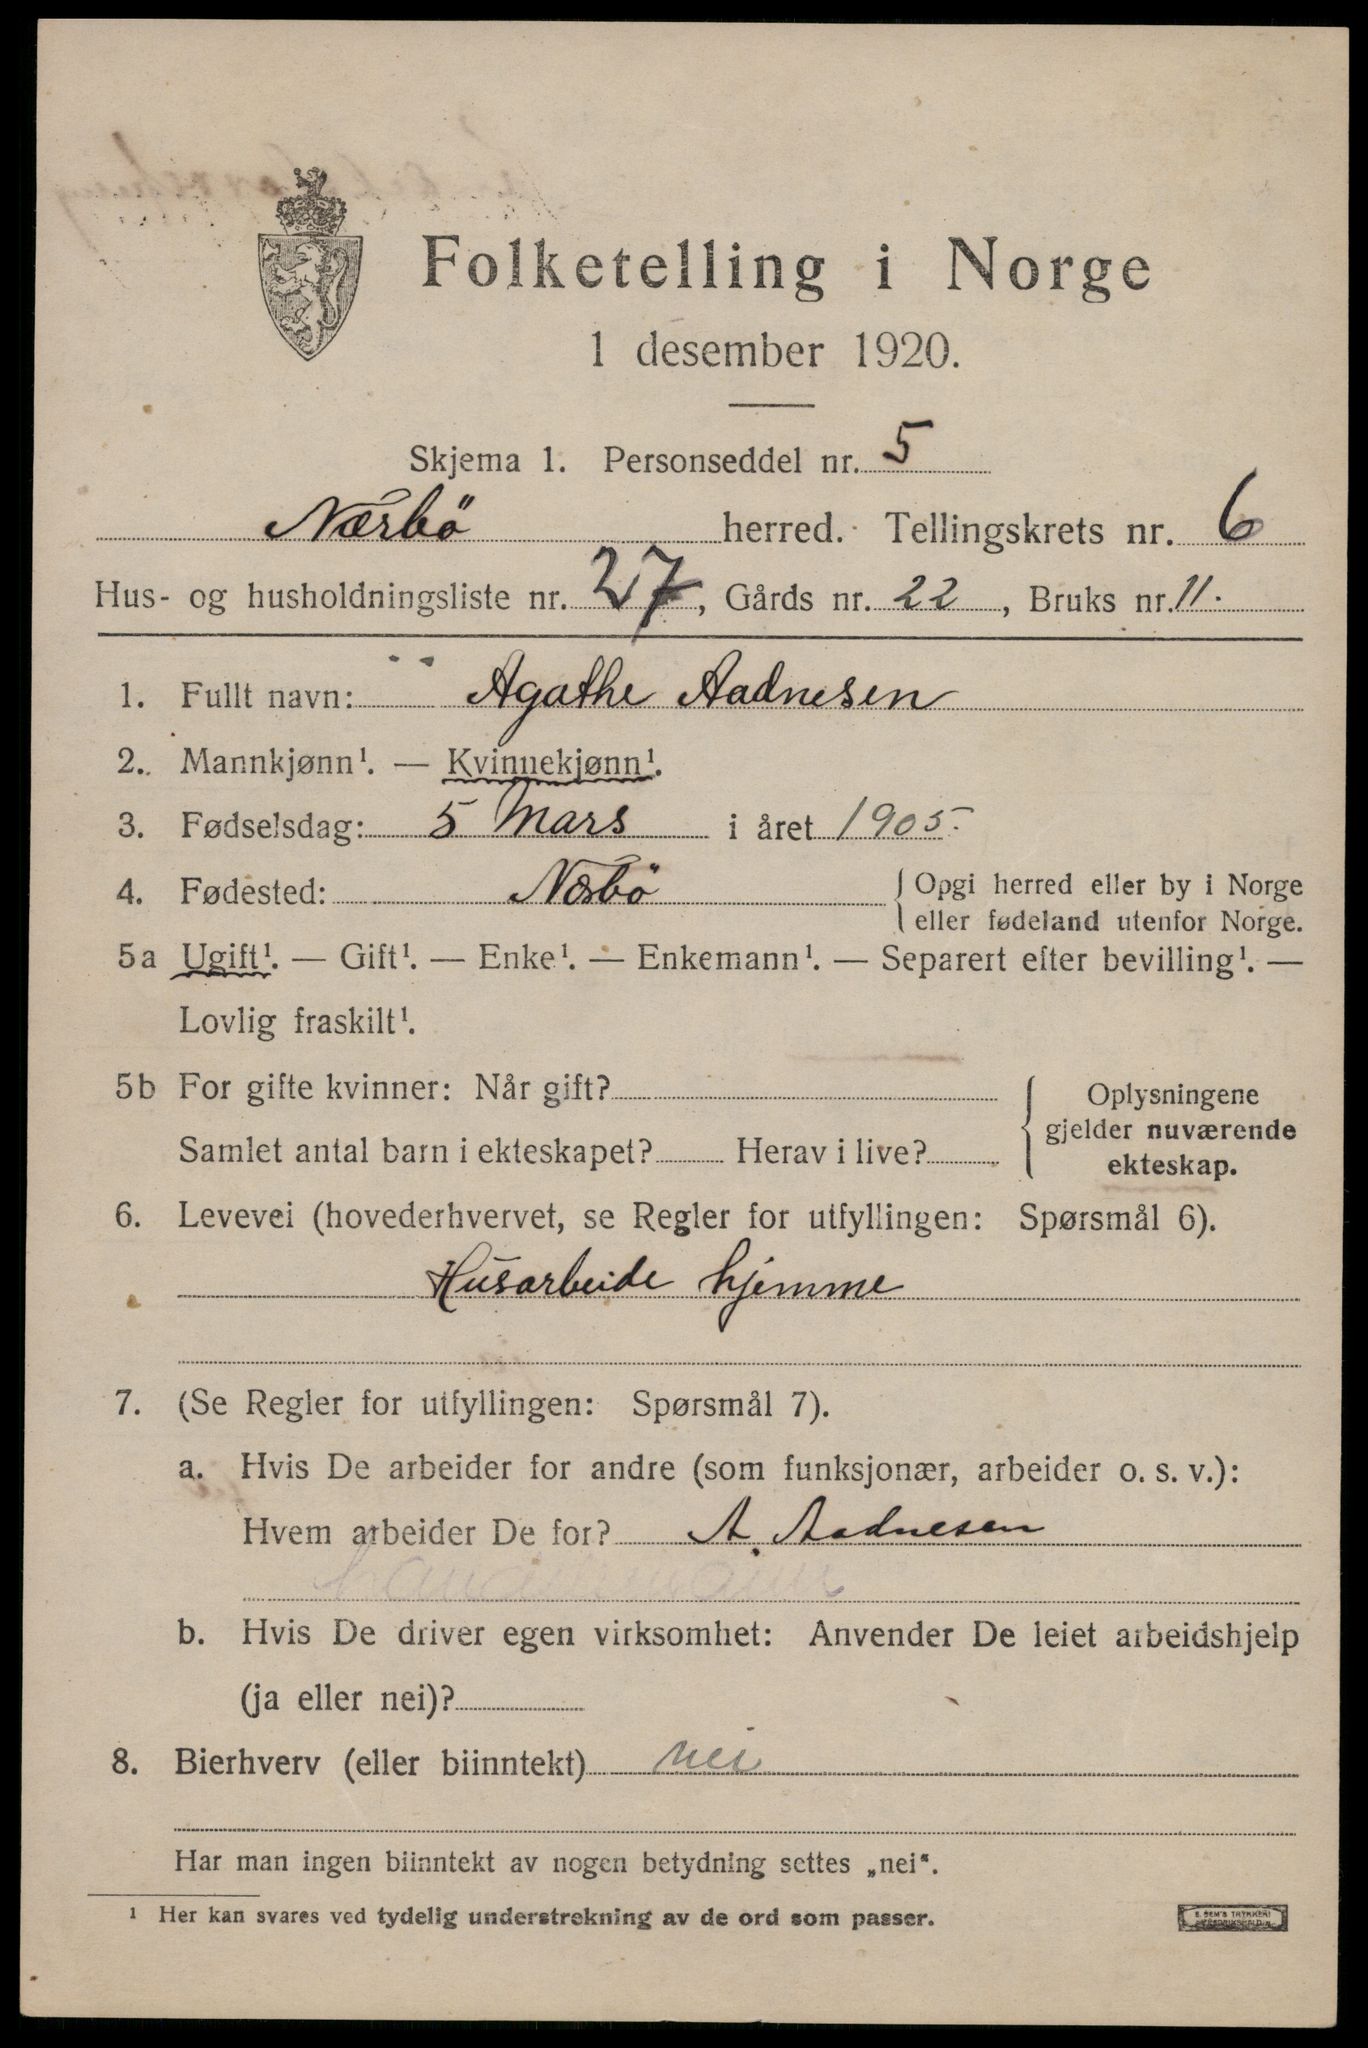 Folketelling i Norge
1 desember 1920.
Skjema 1. Personseddel nr. 5
Nærbö herred. Tellingskrets nr. 6
Hus- og husholdningsliste nr. 27, Gårds nr. 22, Bruks nr. 11.
1. Fullt navn: Agathe Aadnesen
2. Mannkjønn¹. — Kvinnekjønn¹.
3. Fødselsdag: 5 Mars i året 1905.
4. Fødested: Nærbö { Opgi herred eller by i Norge
eller fødeland utenfor Norge.
5a Ugift¹. — Gift¹. — Enke¹. — Enkemann¹. — Separert efter bevilling¹. —
Lovlig fraskilt¹.
5b For gifte kvinner: Når gift?
Samlet antal barn i ekteskapet? Herav i live?
{ Oplysningene
gjelder nuværende
ekteskap.
6. Levevei (hovederhvervet, se Regler for utfyllingen: Spørsmål 6).
Husarbeide hjemme
7. (Se Regler for utfyllingen: Spørsmål 7).
a. Hvis De arbeider for andre (som funksjonær, arbeider o. s. v.):
Hvem arbeider De for? A. Aadnesen
b. Hvis De driver egen virksomhet: Anvender De leiet arbeidshjelp
(ja eller nei)?
8. Bierhverv (eller biinntekt) nei
Har man ingen biinntekt av nogen betydning settes „nei“.
¹ Her kan svares ved tydelig understrekning av de ord som passer.